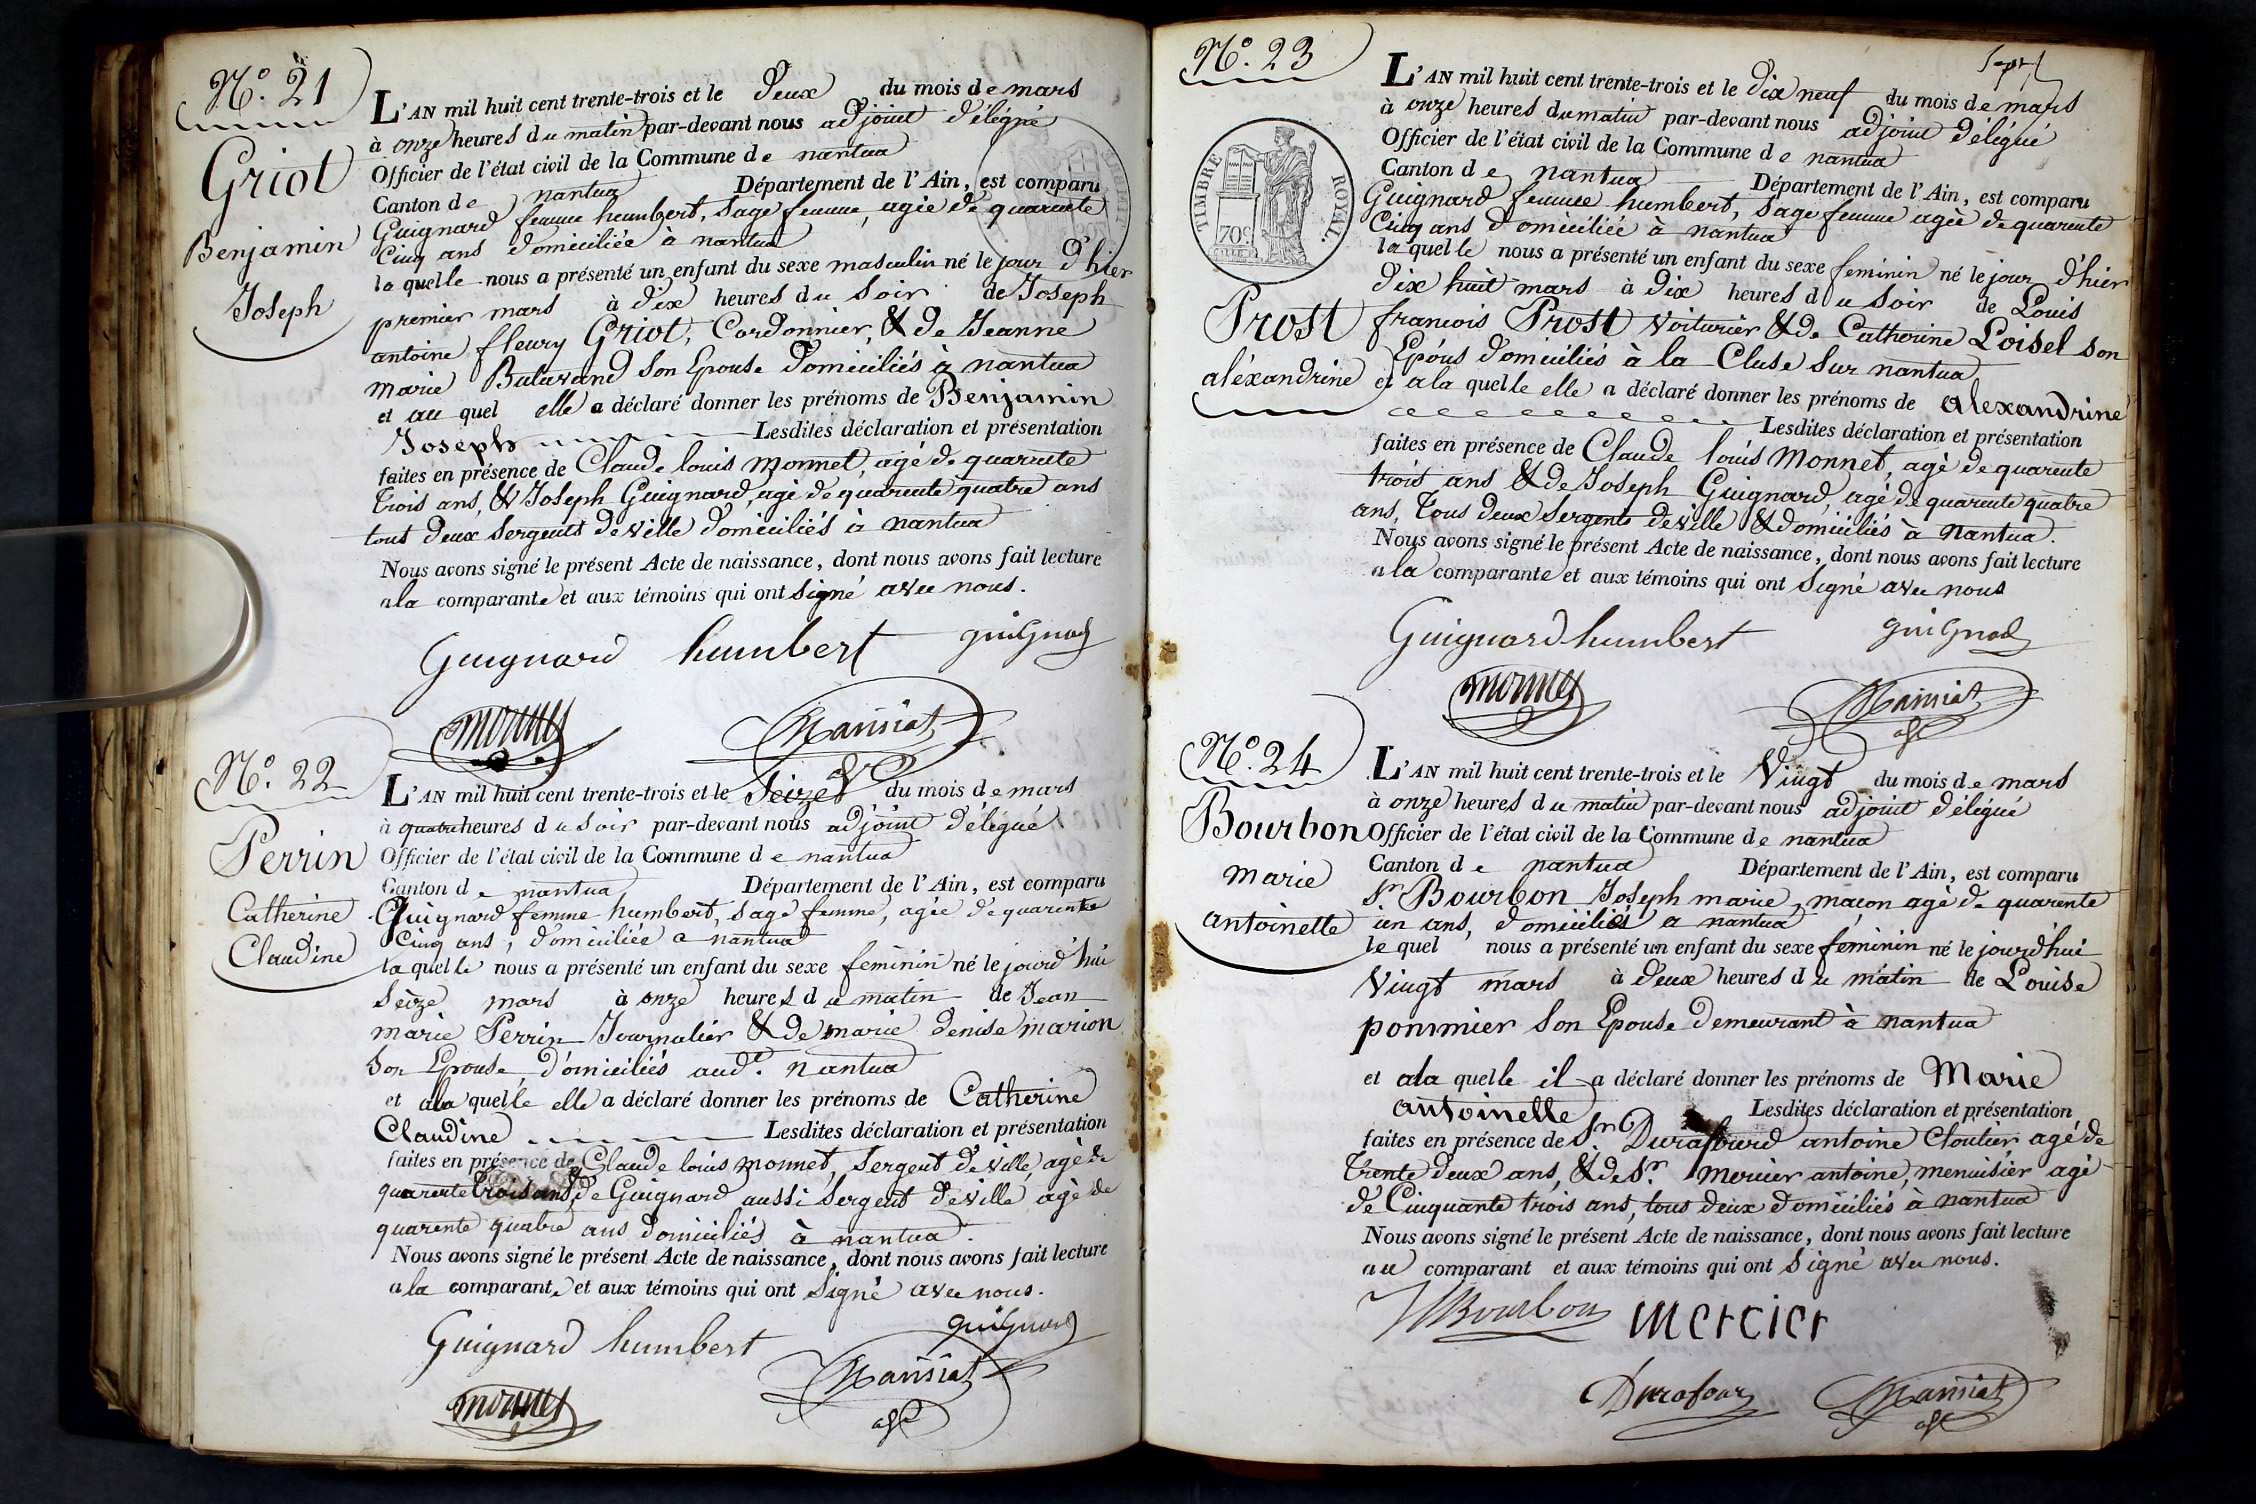 N.° 21
Griot
Benjamin
Joseph
L'AN mil huit cent trente-trois et le deux du mois de mars
à onze heures du matin par-devant nous adjoint délégué
Officier de l'état civil de la Commune de nantua
Canton de nantua Département de l'Ain, est comparu
Guignard femme humbert, sage femme, agée de quarente
Cinq ans domiciliée à nantua
la quelle nous a présenté un enfant du sexe masculin né le jour d'hier
premier mars à dix heures du soir de Joseph
antoine fleury Griot, Cordonnier, & de Jeanne
marie son Epouse domiciliés à nantua
et au quel elle a déclaré donner les prénoms de Benjamin
Joseph Lesdites déclaration et présentation
faites en présence de Claude louis monnet, agé de quarente
trois ans, & Joseph Guignard, agé de quarente quatre ans
tout deux sergents de ville domiciliés à nantua
Nous avons signé le présent Acte de naissance, dont nous avons fait lecture
a la comparante et aux témoins qui ont signé avec nous.
Guignard humbert guignard
monnet Mansiat
N.° 22
Perrin
Catherine
Claudine
L'AN mil huit cent trente-trois et le Seize du mois de mars
à quatre heures du soir par-devant nous adjoint délégué
Officier de l'état civil de la Commune de nantua
Canton de nantua Département de l'Ain, est comparu
Guignard femme humbert, sage femme, agée de quarente
Cinq ans, domiciliée a nantua
la quelle nous a présenté un enfant du sexe feminin né le jourd'hui
Seize mars à onze heures du matin de Jean
marie Perrin Journalier & de marie denise marion
son Epouse, domiciliés aud.t nantua
et ala quelle elle a déclaré donner les prénoms de Catherine
Claudine Lesdites déclaration et présentation
faites en présence de Claude louis monnet, sergent de ville, agé de
quarente trois ans, de Guignard aussi sergent de ville, agé de
quarente quatre ans domiciliés à nantua.
Nous avons signé le présent Acte de naissance, dont nous avons fait lecture
a la comparante et aux témoins qui ont signé avec nous.
Guignard humbert guignard
monnet Mansiat
N.° 23
TIMBRE ROYAL.
70c.
Prost
aléxandrine
L'AN mil huit cent trente-trois et le dix neuf du mois de mars
à onze heures du matin par-devant nous adjoint délégué
Officier de l'état civil de la Commune de nantua
Canton de nantua Département de l'Ain, est comparu
Guignard femme humbert, sage femme agée de quarente
Cinq ans domiciliée à nantua
la quelle nous a présenté un enfant du sexe feminin né le jour d'hier
dix huit mars à dix heures du soir de Louis
francois Prost voiturier & de Catherine Loisel son
Epous domiciliés à la Cluse sur nantua
et ala quelle elle a déclaré donner les prénoms de alexandrine
Lesdites déclaration et présentation
faites en présence de Claude louis Monnet, agé de quarente
trois ans & de Joseph Guignard, agé de quarente quatre
ans, tous deux sergents de ville & domiciliés à nantua.
Nous avons signé le présent Acte de naissance, dont nous avons fait lecture
a la comparante et aux témoins qui ont signé avec nous
Guignard humbert guignard
monnet Mansiat
N.° 24
Bourbon
marie
antoinette
L'AN mil huit cent trente-trois et le Vingt du mois de mars
à onze heures du matin par-devant nous adjoint délégué
Officier de l'état civil de la Commune de nantua
Canton de nantua Département de l'Ain, est comparu
S.r Bourbon Joseph marie, macon agé de quarente
un ans, domicilié a nantua
le quel nous a présenté un enfant du sexe féminin né le jourd'hui
Vingt mars à deux heures du matin de Louise
pommier son Epouse demeurant à nantua
et ala quelle il a déclaré donner les prénoms de Marie
antoinette Lesdites déclaration et présentation
faites en présence de S.r Durafourd antoine Cloutier agé de
trente deux ans, & de S.r mercier antoine, menuisier agé
de Cinquante trois ans, tous deux domiciliés à nantua
Nous avons signé le présent Acte de naissance, dont nous avons fait lecture
au comparant et aux témoins qui ont signé avec nous.
Bourbon Mercier
Durafour Mansiat